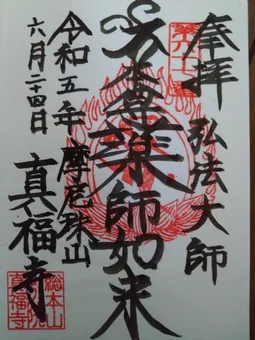 奉拝
弘法大師
本尊薬師如来
摩尼珠山
真福寺
令和五年
六月二十四日
総本山
真福寺